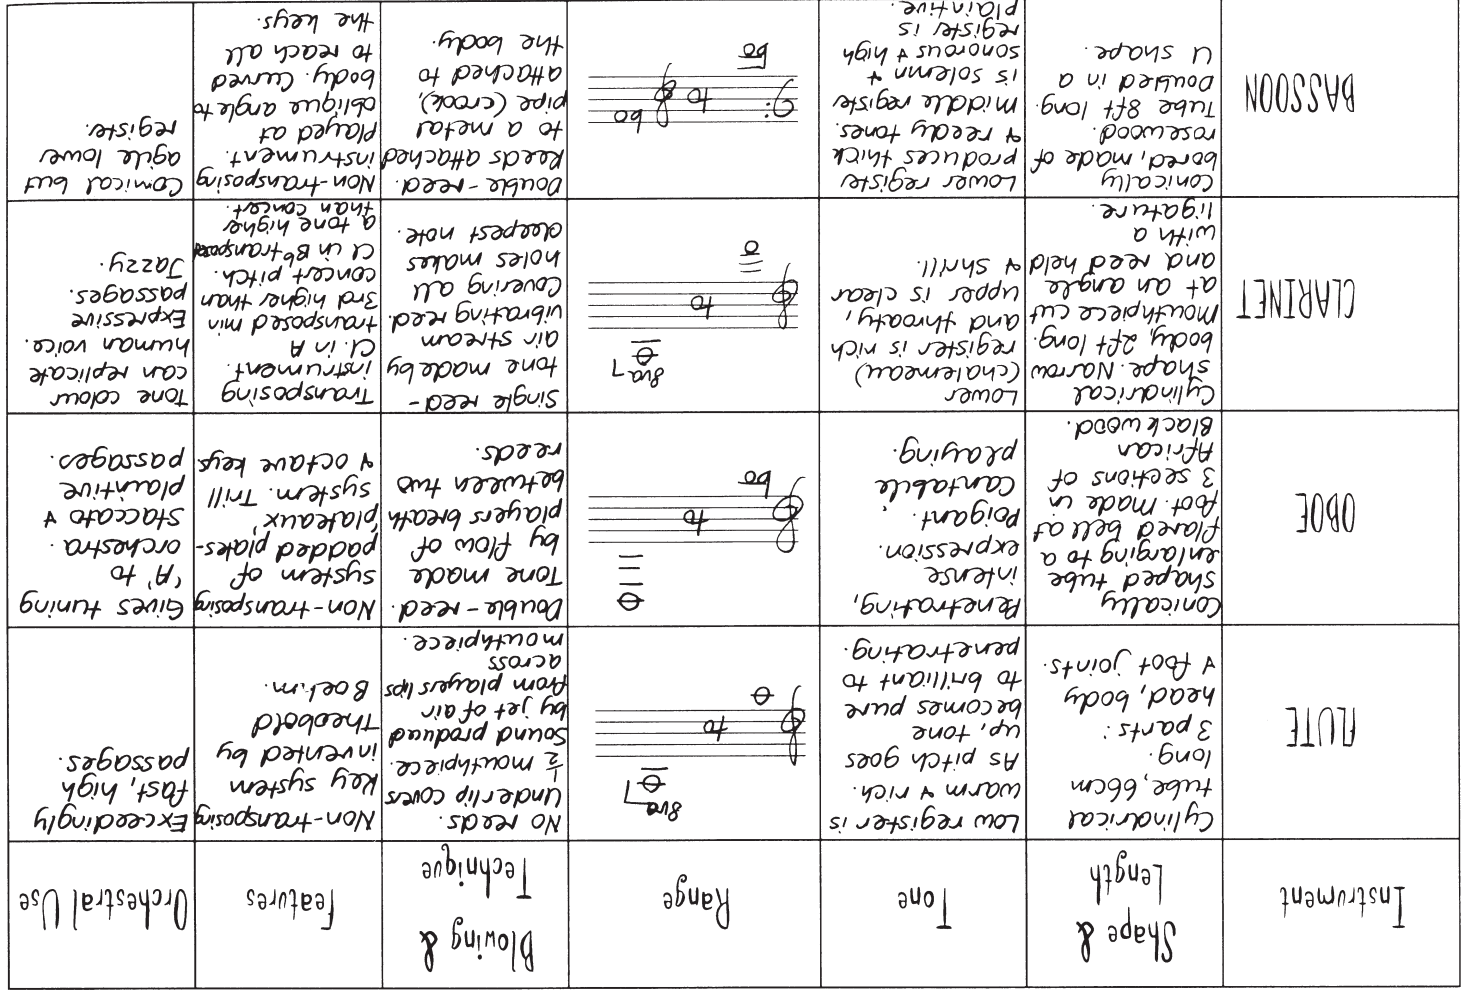 Instrument
Shape &
Length
Tone
Range
Blowing &
Technique
Features
Orchestral Use
FLUTE
Cylindrical
tube, 66cm
long.
3 parts:
head, body
& foot joints.
Low register is
warm & rich.
As pitch goes
up, tone
becomes pure
to brilliant to
penetrating.
8va
to
No reeds.
Underlip covers
½ mouthpiece.
Sound produced
by jet of air
from players lips
across
mouthpiece.
Non-transposing
Key system
invented by
Theobold
Boehm.
Exceedingly
fast, high
passages.
OBOE
Conically
shaped tube
enlarging to a
flared bell at
foot. Made in
3 sections of
African
Blackwood.
Penetrating,
intense
expression.
Poigant.
Cantabile
playing.
to
Double-reed.
Tone made
by flow of
players breath
between two
reeds.
Non-transposing
system of
padded plates-
'plateaux'
system. Trill
& octave keys
Gives tuning
'A' to
orchestra.
Staccato &
plaintive
passages.
CLARINET
Cylindrical
shape. Narrow
body, 2ft long.
Mouthpiece cut
at an angle
and reed held
with a
ligature.
Lower
(chalemeau)
register is rich
and throaty,
upper is clear
& shrill.
8va
to
Single reed-
tone made by
air stream
vibrating reed.
Covering all
holes makes
deepest note.
Transposing
instrument.
Cl. in A
transposed min
3rd higher than
concert pitch.
Cl in B♭ transposed
a tone higher
than concert.
Tone colour
can replicate
human voice.
Expressive
passages.
Jazzy.
BASSOON
Conically
bored, made of
rosewood.
Tube 8ft long.
Doubled in a
U shape.
Lower register
produces thick
& reedy tones.
Middle register
is solemn &
sonorous & high
register is
plaintive.
to
Double-reed.
Reeds attached
to a metal
pipe (crook),
attached to
the body.
Non-transposing
instrument.
Played at
oblique angle to
body. Curved
to reach all
the keys.
Comical but
agile lower
register.